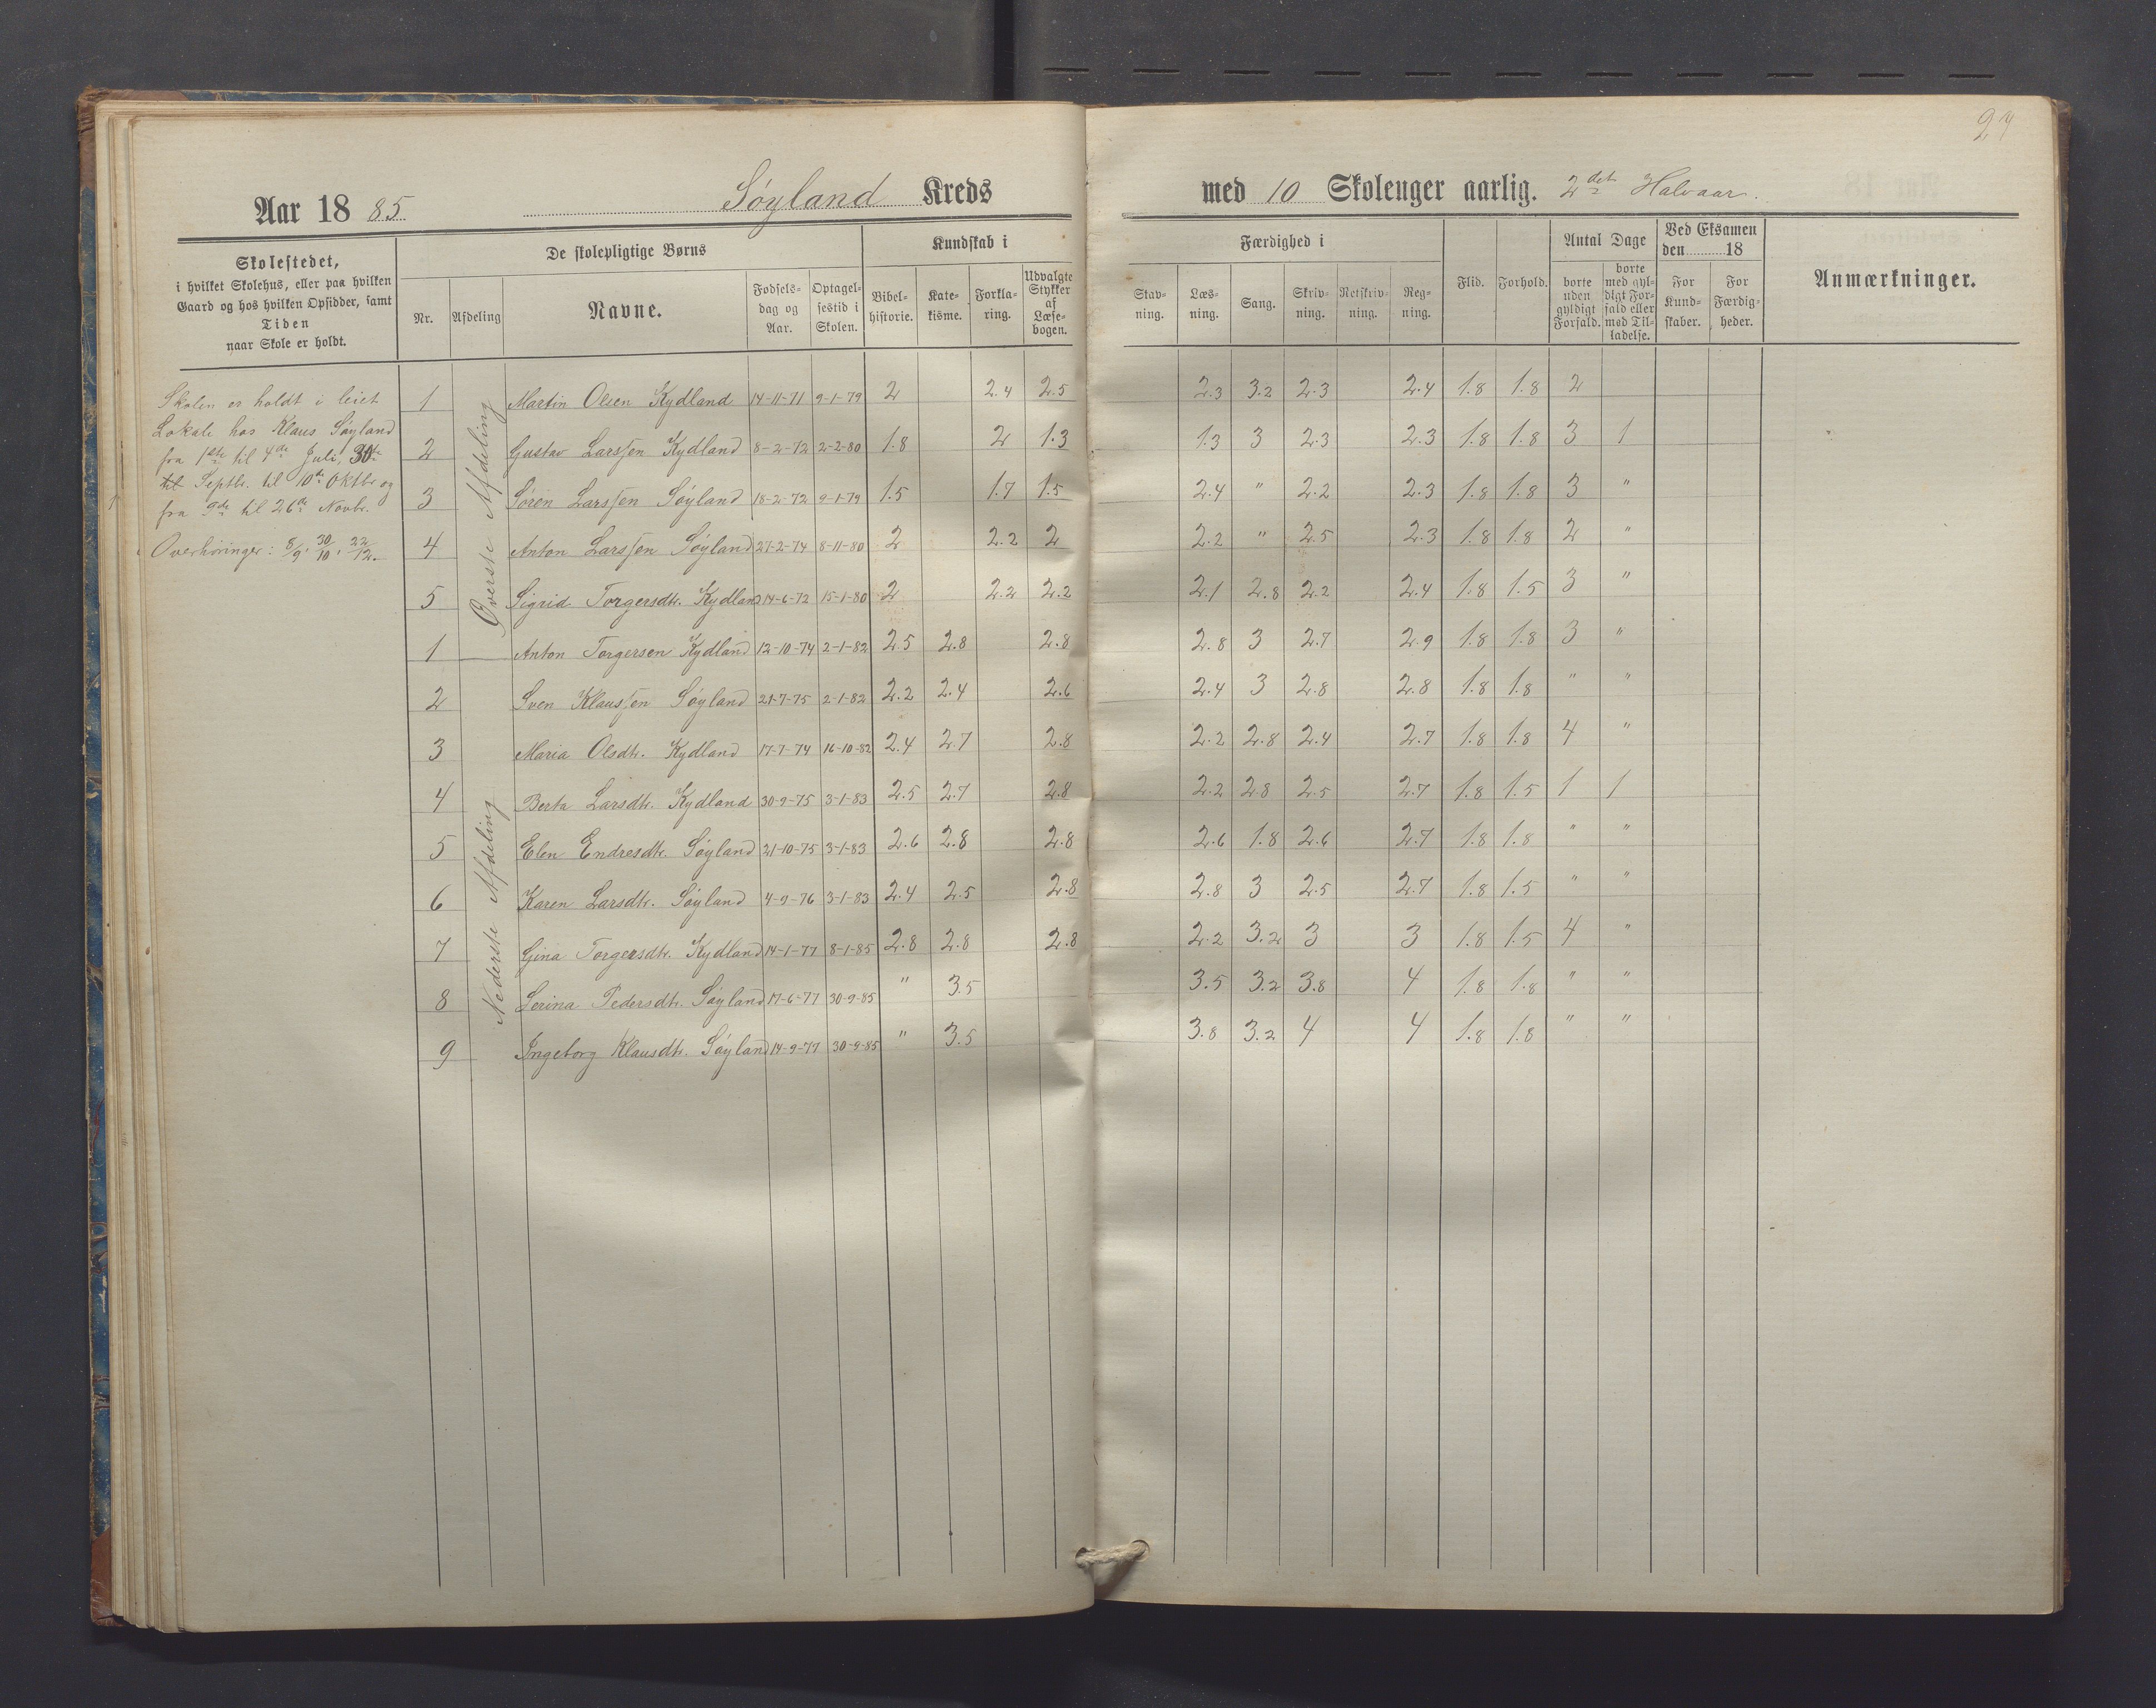 27
Aar 1885. Søyland Kreds med 10 Skoleuger aarlig. 2det Halvaar.
Skolestedet,
i hvilket Skolehus, eller paa hvilken
Gaard og hos hvilken Opsidder, samt
Tiden
naar Skole er holdt.
De skolepligtige Børns
Nr. Afdeling Navne. Fødselsdag og Aar. Optagelsestid i Skolen.
Kundskab i
Bibelhistorie. Katekisme. Forklaring. Udvalgte Stykker af Læsebogen.
Færdighed i
Stavning. Læsning. Sang. Skrivning. Retskrivning. Regning.
Flid. Forhold.
Antal Dage
borte uden gyldigt Forfald. borte med gyldigt Forfald eller med Tilladelse.
Ved Eksamen
den 18
For Kundskaber. For Færdigheder.
Anmærkninger.
Skolen er holdt i leiet
Lokale hos Klaus Søyland
fra 1ste til 4de Juli, 30te
til Septbr. til 10de Oktbr og
fra 9de til 26de Novbr.
Overhøringer: 8/9, 30/10, 22/12.
Øverste Afdeling
1 Martin Olsen Kydland 14-11-71 9-1-79 2 2.4 2.5 2.3 3.2 2.3 2.4 1.8 1.8 2
2 Gustav Larssen Kydland 8-2-72 2-2-80 1.8 2 1.3 1.3 3 2.3 2.3 1.8 1.8 3 1
3 Søren Larssen Søyland 18-2-72 9-1-79 1.5 1.7 1.5 2.4 " 2.2 2.3 1.8 1.8 3 "
4 Anton Larssen Søyland 27-2-74 8-11-80 2 2.2 2 2.2 " 2.5 2.3 1.8 1.8 2 "
5 Sigrid Torgersdtr. Kydland 14-6-72 15-1-80 2 2.2 2.2 2.1 2.8 2.2 2.4 1.8 1.5 3 "
Nederste Afdeling
1 Anton Torgersen Kydland 12-10-74 2-1-82 2.5 2.8 2.8 2.8 3 2.7 2.9 1.8 1.8 3 "
2 Sven Klaussen Søyland 21-7-75 2-1-82 2.2 2.4 2.6 2.4 3 2.8 2.8 1.8 1.8 " "
3 Maria Olsdtr. Kydland 17-7-74 16-10-82 2.4 2.7 2.8 2.2 2.8 2.4 2.7 1.8 1.8 4 "
4 Berta Larsdtr. Kydland 30-9-75 3-1-83 2.5 2.7 2.8 2.2 2.8 2.5 2.7 1.8 1.5 1 1
5 Elen Endresdtr. Søyland 21-10-75 3-1-83 2.6 2.8 2.8 2.6 1.8 2.6 2.7 1.8 1.8 " "
6 Karen Larsdtr. Søyland 4-9-76 3-1-83 2.4 2.5 2.8 2.8 3 2.5 2.7 1.8 1.5 " "
7 Gina Torgersdtr. Kydland 14-1-77 8-1-85 2.8 2.8 2.8 2.2 3.2 3 3 1.8 1.5 4 "
8 Serina Pedersdtr. Søyland 17-6-77 30-9-85 " 3.5 3.5 3.2 3.8 4 1.8 1.8 " "
9 Ingeborg Klausdtr. Søyland 14-9-77 30-9-85 " 3.5 3.8 3.2 4 4 1.8 1.8 " "